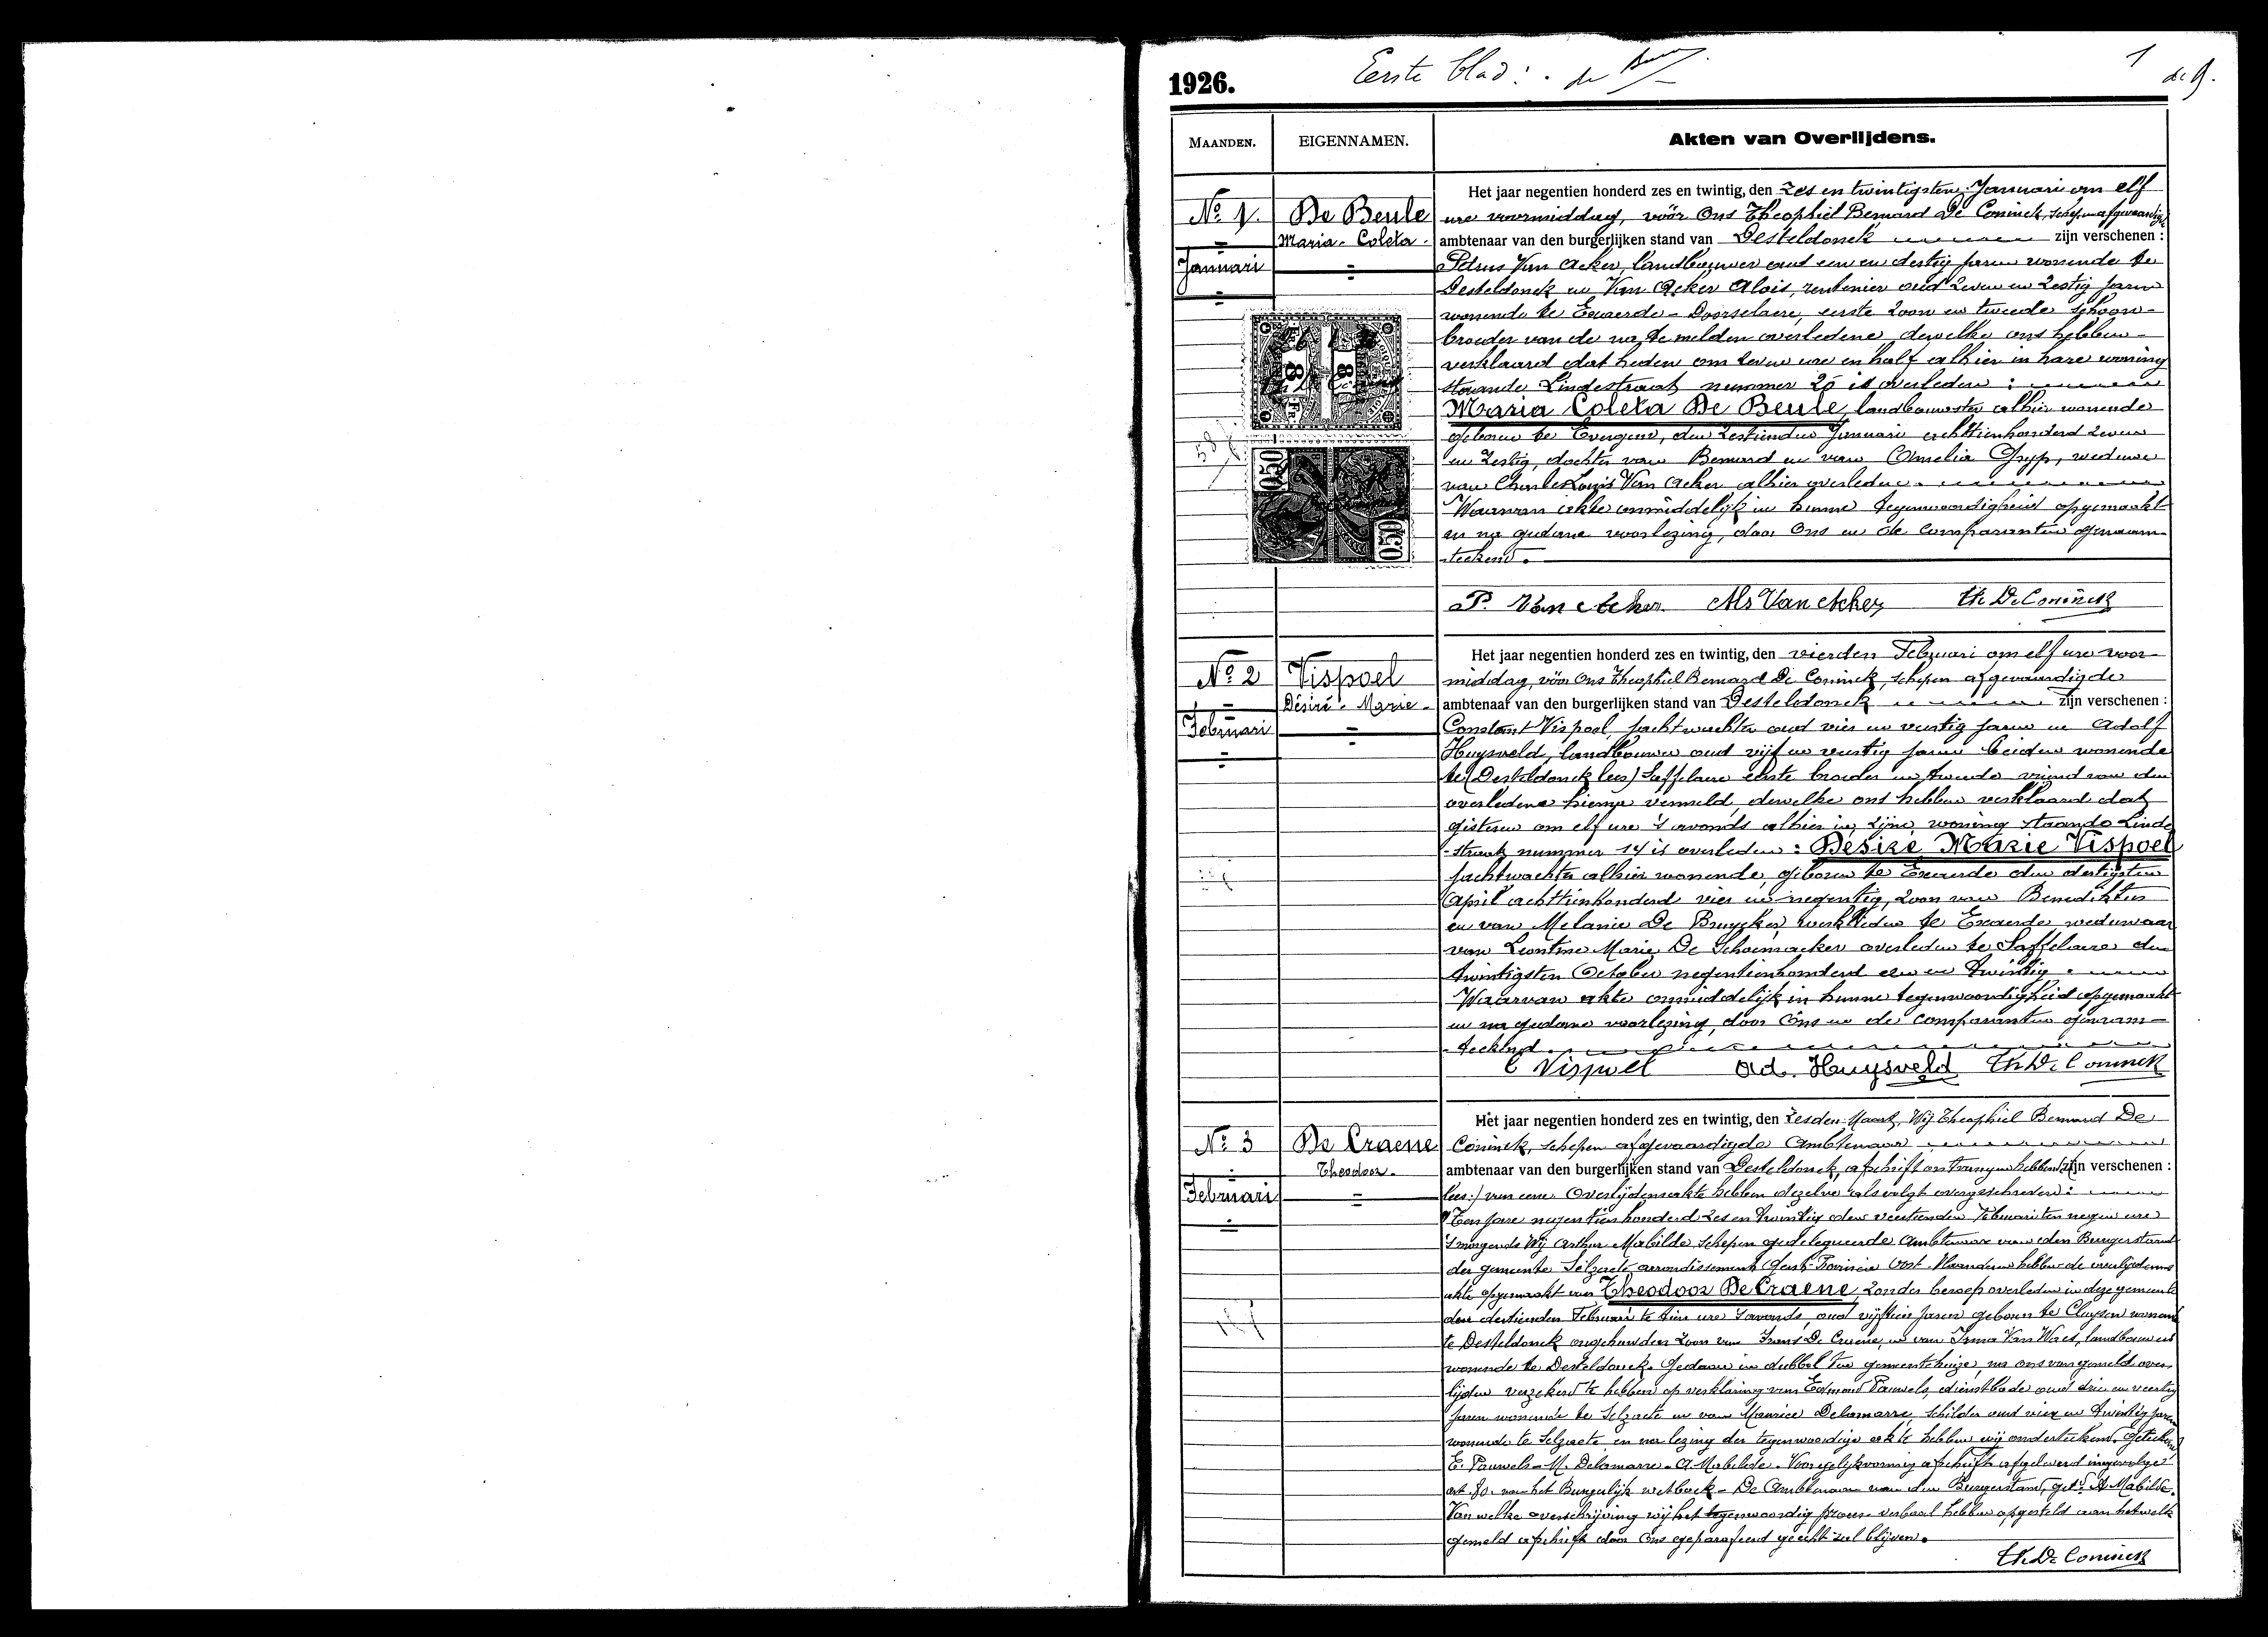 1926.
Eerste blad :
1
MAANDEN.
EIGENNAMEN.
Akten van Overlijdens.
No 1.
De Beule
Maria-Coleta-
Januari
Het jaar negentien honderd zes en twintig, den zes en twintigsten Januari om elf
ure voormiddag, vóór Ons Theophiel Bernard De Coninck, schepen afgevaardigde
ambtenaar van den burgerlijken stand van Desteldonck zijn verschenen :
Petrus Van Acker, landbouwer oud een en dertig jaren wonende te
Desteldonck en Van Acker Alois, rentenier oud zeven en zestig jaren
wonende te Exaerde-Doorselaere, eerste zoon en tweede schoon-
broeder van de na te melden overledene, dewelke ons hebben
verklaard dat heden om zeven ure en half alhier in hare woning
staande Lindestraat nummer 20 is overleden :
Maria Coleta De Beule, landbouwster alhier wonende
geboren te Evergem, den zestienden Januari achttienhonderd zeven
en zestig, dochter van Bernard en van Amelia Gryp, weduwe
van Charles Louis Van Acker alhier overleden.
Waarvan akte onmiddelijk in hunne tegenwoordigheid opgemaakt
en na gedane voorlezing, door Ons en de comparanten genaam-
teekend.
P. Van Acker Als Van Acker Th De Coninck
No 2
Vispoel
Désiré-Marie-
Februari
Het jaar negentien honderd zes en twintig, den vierden Februari om elf ure voor-
middag, vóór Ons Theophiel Bernard De Coninck, schepen afgevaardigde
ambtenaar van den burgerlijken stand van Desteldonck zijn verschenen :
Constant Vispoel, jachtwachter oud vier en veertig jaren en Adolf
Huysveld, landbouwer oud vijf en veertig jaren beiden wonende
te (Desteldonck lees) Saffelaere eerste broeder en tweede vriend van den
overledene hierna vermeld, dewelke ons hebben verklaard dat
gisteren om elf ure 's avonds alhier in zijne woning staande Linde
-straat nummer 14 is overleden : Désiré Marie Vispoel
jachtwachter alhier wonende, geboren te Exaerde den dertigsten
April achttienhonderd vier en negentig, zoon van Benediktus
en van Melanie De Bruycker, werklieden te Exaerde weduwaar
van Leontine Marie De Schoenmacker overleden te Saffelaere den
twintigsten October negentienhonderd een en twintig.
Waarvan akte onmiddelijk in hunne tegenwoordigheid opgemaakt
en na gedane voorlezing, door Ons en de comparanten genaam-
-teekend.
C Vispoel Ad. Huysveld Th De Coninck
No 3
De Craene
Theodoor.
Februari
Het jaar negentien honderd zes en twintig, den zesden Maart, Wij Theophiel Bernard De
Coninck, schepen afgevaardigde Ambtenaar
ambtenaar van den burgerlijken stand van Desteldonck, afschrift ontvangen hebben (zijn verschenen :
lees:) van eene Overlijdensakte hebben dezelve als volgt overgeschreven :
"Ten jare negentienhonderd zes en twintig den veertienden Februari ten negen ure
's morgends Wij Arthur Mabilde Schepen gedelegueerde Ambtenaar van den Burgerstand
der gemeente Selzaete arrondissement Gent Provincie Oost-Vlaanderen hebben de overlijdens
akte opgemaakt van Theodoor De Craene, zonder beroep overleden in deze gemeente
den dertienden Februari te tien ure 's avonds, oud vijftien jaren geboren te Cluysen wonende
te Desteldonck ongehuwden zoon van Frans De Craene, en van Irma Van Waes, landbouwers
wonende te Desteldonck. Gedaan in dubbel ten gemeentehuize, na ons van gemeld over-
lijden verzekerd te hebben op verklaring van Edmond Pauwels, dienstbode oud drie en veertig
jaren wonende te Selzaete en van Maurice Delamarre, schilder oud vier en twintig jaren
wonende te Selzaete en na lezing der tegenwoordige akte hebben wij onderteekend. Geteekend
E. Pauwels - M. Delamarre - A. Mabilde. Voor gelijkvormig afschrift afgeleverd ingevolge
art. 80 van het Burgerlijk wetboek - De Ambtenaar van den Burgerstand, get. A Mabilde.
Van welke overschrijving wij het tegenwoordig proces-verbaal hebben opgesteld aan hetwelk
gemeld afschrift door Ons geparafeerd gehecht zal blijven.
Th. De Coninck